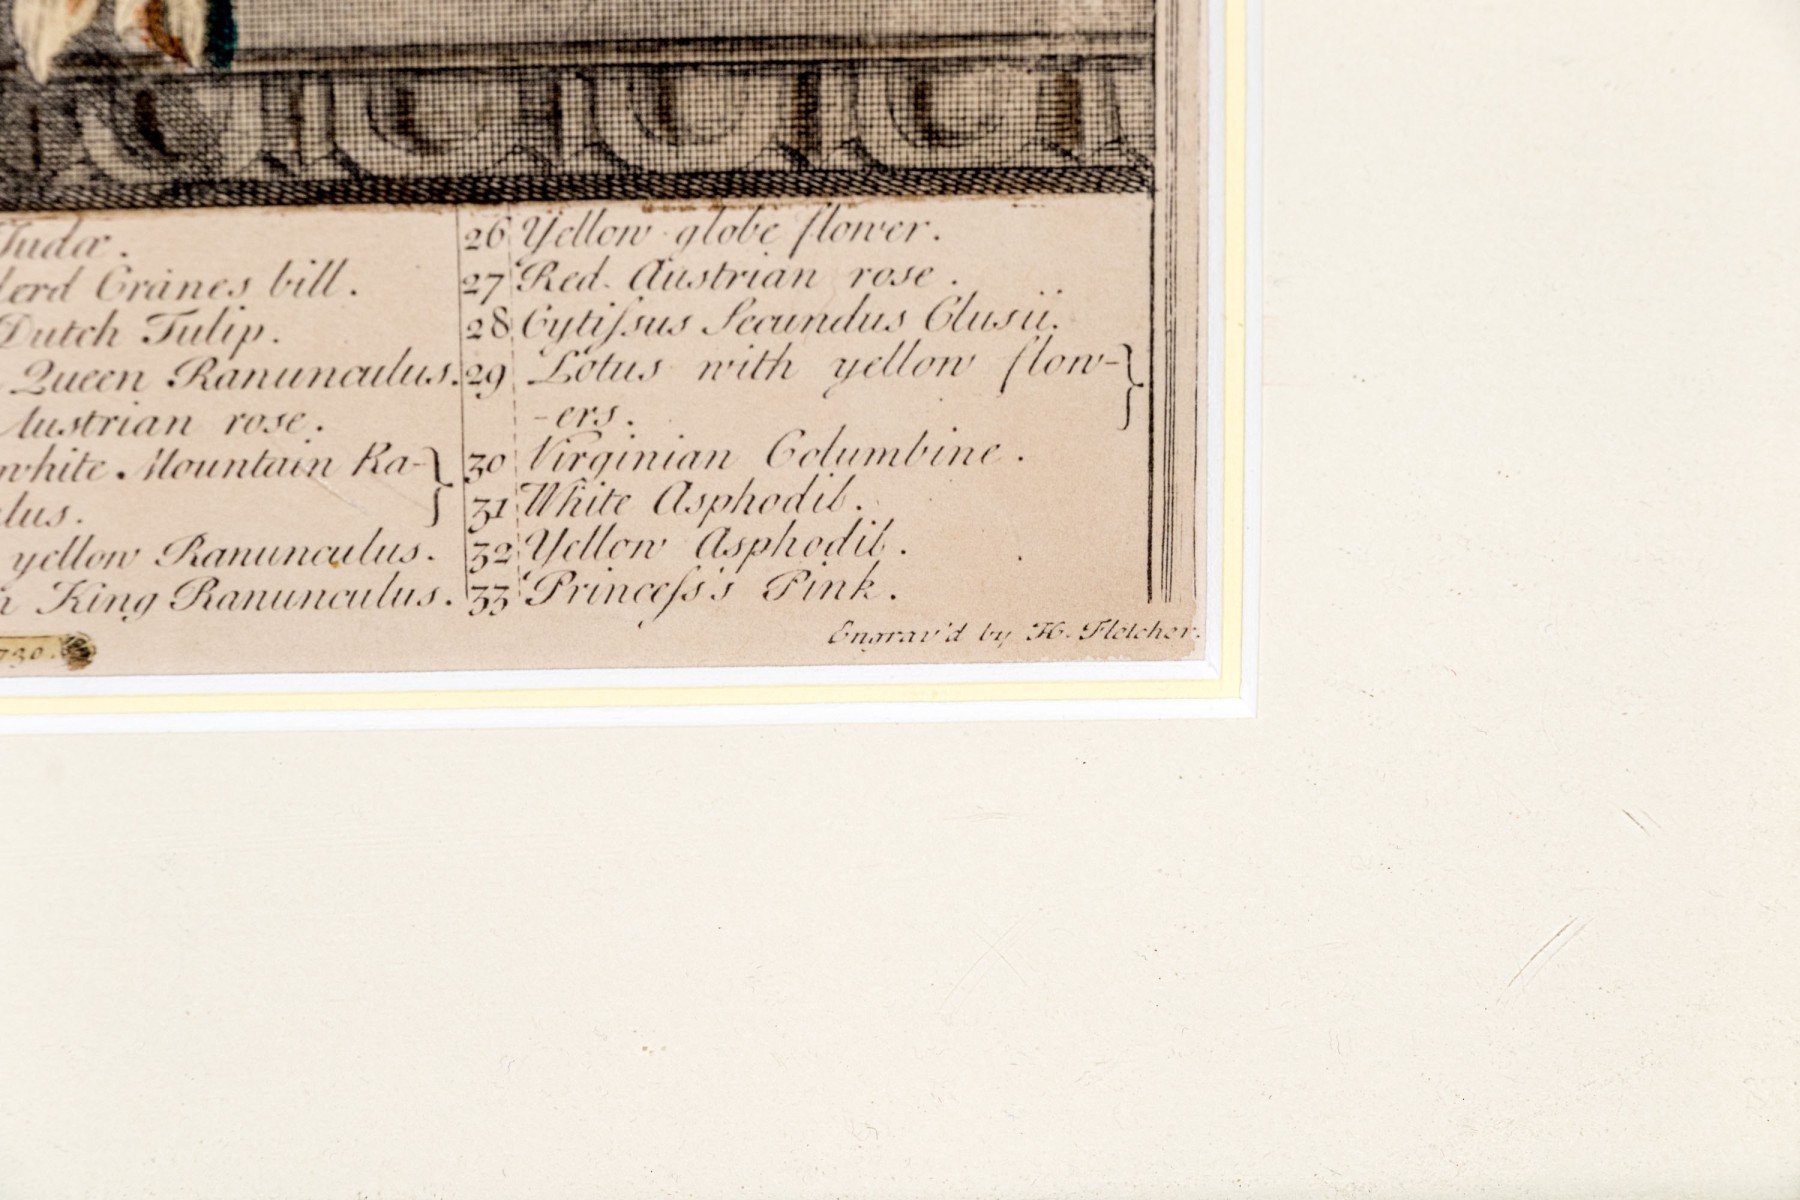 Judæ.
Cranes bill.
Dutch Tulip.
Queen Ranunculus.
Austrian rose.
white Mountain Ra-
lus.
yellow Ranunculus.
King Ranunculus.
730.
26 Yellow globe flower.
27 Red Austrian rose.
28 Cytiſsus Secundus Clusii.
29 Lotus with yellow flow-
-ers.
30 Virginian Columbine.
31 White Asphodil.
32 Yellow Asphodil.
33 Princeſs's Pink.
Engrav'd by H. Fletcher.